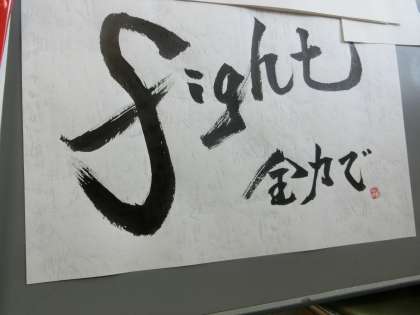 fight
全力で